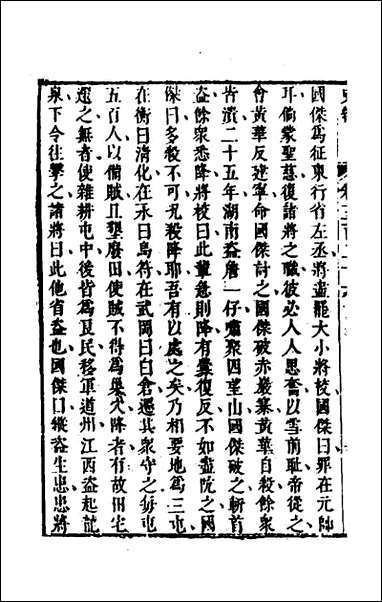 國傑爲征東行省左丞將盡罷大小將校國傑曰罪在元帥
耳倘蒙聖慈復諸將之職彼必人人思奮以雪前耻帝從之
會黃華反建寧命國傑討之國傑破赤巖寨黃華自殺餘衆
皆潰二十五年湖南盗詹一仔嘯聚四望山國傑破之斬首
盗餘衆悉降將校曰此輩急則降有釁復反不如盡阬之國
傑曰多殺不可况殺降耶吾有以處之矣乃相要地爲三屯
在衡曰清化在永曰烏符在武岡曰白倉遷其衆守之每屯
五百人以備賊且墾廢田使賊不得爲巢穴降者有故田宅
還之無者使雜耕屯中後皆爲良民移軍道州江西盗起龍
泉下令往擊之諸將曰此他省盗也國傑曰縱盗生患患將